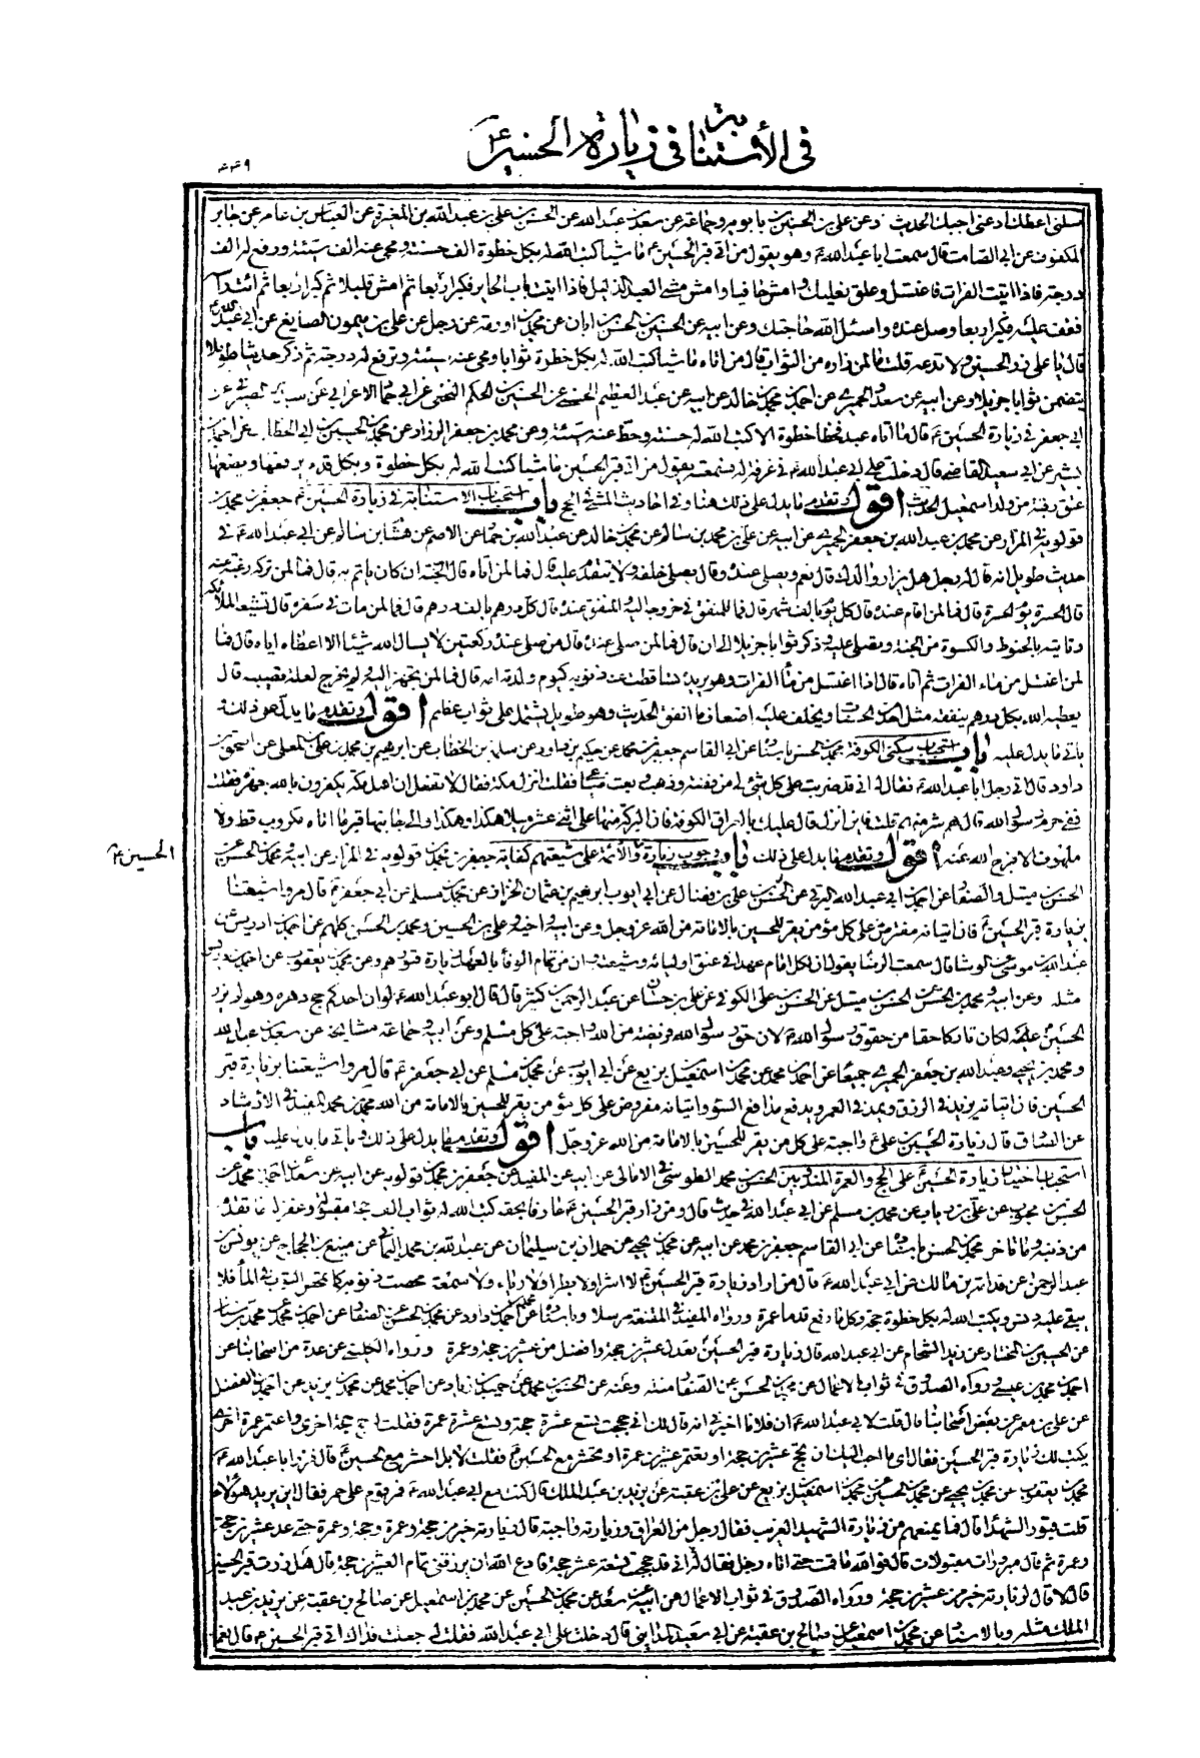 في الاستنابة في زيارة الحسين ع
٤٤٩
سلني اعطك ادعني اجبك الحديث وعن علي بن الحسين بن بابويه وجماعة عن سعد بن عبد الله عن الحسن بن علي بن عبد الله بن المغيرة عن العباس بن عامر عن جابر
المكفوف عن ابي الصامت قال سمعت ابا عبد الله ع وهو يقول من اتى قبر الحسين ع ماشيا كتب الله له بكل خطوة الف حسنة ومحى عنه الف سيئة ورفع له الف
درجة فاذا اتيت الفرات فاغتسل وعلق نعليك وامش حافيا وامش مشي العبد الذليل فاذا اتيت باب الحاير فكبر اربعا ثم امش قليلا ثم كبر اربعا ثم ائت راسه
فقف عليه فكبر اربعا وصل عنده واسئل الله حاجتك وعن ابيه عن الحسين بن الحسن بن ابان عن محمد بن اورمة عن رجل عن علي بن ميمون الصايغ عن ابي عبد الله ع
قال يا علي زر الحسين ولا تدعه قلت ما لمن زاره من الثواب قال من اتاه ماشيا كتب الله له بكل خطوة ثوابا ومحى عنه سيئة وترفع له درجة ثم ذكر حديثا طويلا
يتضمن ثوابا جزيلا وعن ابيه عن سعد والحميري عن احمد بن محمد بن خالد عن ابيه عن عبد العظيم الحسني عن الحسين بن الحكم النخعي عن ابي حماد الاعرابي عن سدير الصيرفي عن
ابي جعفر في زيارة الحسين ع قال ما اتاه عبد فخطا خطوة الا كتب الله له حسنة وحط عنه سيئة وعن محمد بن جعفر الرزاز عن محمد بن الحسين بن ابي الخطاب عن احمد بن
بشير عن ابي سعيد القاضي قال دخلت على ابي عبد الله ع في غرفة له فسمعته يقول من اتى قبر الحسين ماشيا كتب الله له بكل خطوة وبكل قدم يرفعها ويضعها
عتق رقبة من ولد اسمعيل الحديث اقول وتقدم ما يدل على ذلك هنا وفي احاديث المشي في الحج باب استحباب الاستنابة في زيارة الحسين ع جعفر بن محمد بن
قولويه في المزار عن محمد بن عبد الله بن جعفر الحميري عن ابيه عن علي بن محمد بن سالم عن محمد بن خالد عن عبد الله بن حماد عن الاصم عن هشام بن سالم عن ابي عبد الله ع في
حديث طويل انه قال له رجل هل يزار والدك قال نعم ويصلى عنده وقال يصلى خلفه ولا يتقدم عليه قال فما لمن اتاه قال الجنة ان كان ياتم به قال فما لمن تركه رغبة عنه
قال الحسرة يوم الحسرة قال فما لمن اقام عنده قال كل يوم بالف شهر قال فما للمنفق في خروجه اليه والمنفق عنده قال كل درهم بالف درهم قال فما لمن مات في سفره قال تشيعه الملائكة
وتاتيه بالحنوط والكسوة من الجنة وتصلي عليه وذكر ثوابا جزيلا الى ان قال فما لمن صلى عنده قال من صلى عنده ركعتين لا يسال الله شيئا الا اعطاه اياه قال فما
لمن اغتسل من ماء الفرات ثم اتاه قال اذا اغتسل من ماء الفرات وهو يريده تساقطت عنه ذنوبه كيوم ولدته امه قال فما لمن تجهز اليه ولم يخرج لعلة تصيبه قال
يعطيه الله بكل درهم ينفقه مثل احد من الحسنات ويخلف عليه اضعاف ما انفق الحديث وهو طويل يشتمل على ثواب عظيم اقول وتقدم ما يدل على ذلك
ياتي ما يدل عليه باب استحباب سكنى الكوفة محمد بن الحسن باسناده عن ابي القاسم جعفر بن محمد عن حكيم بن داود عن سلمة بن الخطاب عن ابراهيم بن محمد بن علي بن المعلى عن اسحق بن
داود قال اتى رجل ابا عبد الله ع فقال له اني قد ضربت على كل شيء لي من فضة وذهب وبعت ضياعي فقلت انزل مكة فقال لا تفعل ان اهل مكة يكفرون بالله جهرة فقلت
ففي حرم رسول الله قال هم شر منهم قلت فاين انزل قال عليك بالعراق الكوفة فان البركة منها على اثنى عشر ميلا هكذا وهكذا والى جانبها قبر ما اتاه مكروب قط ولا
ملهوف الا فرج الله عنه اقول وتقدم ما يدل على ذلك باب وجوب زيارة الحسين ع والائمة على شيعتهم كفاية جعفر بن محمد بن قولويه في المزار عن ابيه ومحمد بن الحسن عن
الحسن بن متيل والصفار عن احمد بن ابي عبد الله البرقي عن الحسن بن علي بن فضال عن ابي ايوب ابراهيم بن عثمان الخزاز عن محمد بن مسلم عن ابي جعفر ع قال مروا شيعتنا
بزيارة قبر الحسين ع فان اتيانه مفترض على كل مؤمن يقر للحسين بالامامة من الله عز وجل وعن ابيه واخيه وعلي بن الحسين ومحمد بن الحسن كلهم عن احمد بن ادريس عن
عبد الله بن موسى عن الوشا قال سمعت الرضا يقول ان لكل امام عهدا في عنق اوليائه وشيعته وان من تمام الوفاء بالعهد زيارة قبورهم وعن محمد بن يعقوب عن احمد بن ادريس
مثله وعن ابيه ومحمد بن الحسن عن الحسن بن متيل عن الحسن بن علي الكوفي عن علي بن حسان عن عبد الرحمن بن كثير قال قال ابو عبد الله ع لو ان احدكم حج دهره ولم يزر
الحسين بن علي ع لكان تاركا حقا من حقوق رسول الله ع لان حق رسول الله فريضة من الله واجبة على كل مسلم وعن ابيه وجماعة مشايخه عن سعد بن عبد الله
ومحمد بن يحيى وعبد الله بن جعفر الحميري جميعا عن احمد بن محمد عن محمد بن اسمعيل بن بزيع عن ابي ايوب عن محمد بن مسلم عن ابي جعفر ع قال مروا شيعتنا بزيارة قبر
الحسين فان اتيانه يزيد في الرزق ويمد في العمر ويدفع مدافع السوء واتيانه مفروض على كل مؤمن يقر للحسين بالامامة من الله محمد بن محمد المفيد في الارشاد
عن الصادق قال زيارة الحسين بن علي ع واجبة على كل من يقر للحسين بالامامة من الله عز وجل اقول وتقدم ما يدل على ذلك وياتي ما يدل عليه باب
استحباب اختيار زيارة الحسين ع على الحج والعمرة المندوبين الحسن بن محمد الطوسي في الامالي عن ابيه عن المفيد عن جعفر بن محمد بن قولويه عن ابيه عن سعد عن احمد بن محمد عن
الحسن بن محبوب عن علي بن رياب عن محمد بن مسلم عن ابي عبد الله ع في حديث قال ومن زار قبر الحسين ع عارفا بحقه كتب الله له ثواب الف حجة مقبولة وغفر له ما تقدم
من ذنبه وما تاخر محمد بن الحسن باسناده عن ابي القاسم جعفر بن محمد عن ابيه عن محمد بن يحيى عن حمدان بن سليمان عن عبد الله بن محمد اليماني عن منيع بن الحجاج عن يونس بن
عبد الرحمن عن قدامة بن مالك عن ابي عبد الله ع قال من اراد زيارة قبر الحسين ع لا اشرا ولا بطرا ولا رياء ولا سمعة محصت ذنوبه كما يمحص الثوب في الماء فلا
يبقى عليه دنس ويكتب الله له بكل خطوة حجة وكل ما رفع قدما عمرة ورواه المفيد في المقنعة مرسلا وباسناده عن محمد بن احمد بن داود عن محمد بن الحسن عن الصفار عن احمد بن محمد عن محمد بن سنان
عن الحسين بن المختار عن زيد الشحام عن ابي عبد الله قال زيارة قبر الحسين تعدل عشرين حجة وافضل من عشرين حجة وعمرة ورواه الكليني عن عدة من اصحابنا عن
احمد بن محمد بن عيسى ورواه الصدوق في ثواب الاعمال عن محمد بن الحسن عن الصفار مثله وعنه عن الحسن بن محمد عن حميد بن زياد عن احمد بن محمد عن محمد بن يزيد عن احمد بن الفضل
عن علي بن معمر عن بعض اصحابنا قال قلت لابي عبد الله ع ان فلانا اخبرني انه قال لك اني حججت تسع عشرة حجة وتسع عشرة عمرة فقلت له حج حجة اخرى واعتمر عمرة اخرى
يكتب لك زيارة قبر الحسين فقال اي ما احب اليك ان تحج عشرين حجة او تعتمر عشرين عمرة او تحشر مع الحسين ع فقلت لا بل احشر مع الحسين ع قال فزر ابا عبد الله ع
محمد بن يعقوب عن محمد بن يحيى عن محمد بن الحسين عن محمد بن اسمعيل بن بزيع عن علي بن عقبة عن يزيد بن عبد الملك قال كنت مع ابي عبد الله ع فمر قوم على حمر فقال اين يريد هؤلاء
قلت قبور الشهداء قال فما يمنعهم من زيارة الشهيد الغريب فقال رجل من العراق وزيارته واجبة قال زيارته خير من حجة وعمرة وحجة وعمرة حتى عد عشرين حجة
وعمرة ثم قال مبرورات مقبولات قال فوالله ما قمت حتى اتاه رجل فقال له اني قد حججت تسعة عشر حجة فادع الله ان يرزقني تمام العشرين حجة قال هل زرت قبر الحسين
قال لا قال لزيارته خير من عشرين حجة ورواه الصدوق في ثواب الاعمال عن ابيه عن سعد عن محمد بن الحسين عن محمد بن اسمعيل عن صالح بن عقبة عن يزيد بن عبد
الملك مثله وبالاسناد عن محمد بن اسمعيل عن صالح بن عقبة عن ابي سعيد المدايني قال دخلت على ابي عبد الله فقلت له جعلت فداك اتي قبر الحسين ع قال نعم
الحسين ع